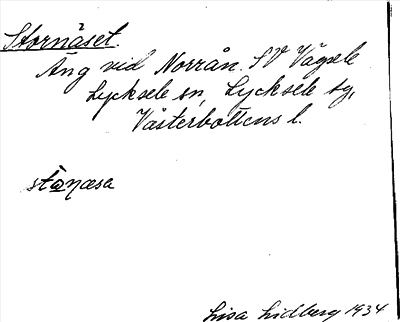 Stornäset.
Äng vid Norrån. SV Vägsele
Lycksele sn, Lycksele sg,
Västerbottens l.
Lisa Lidberg 1934